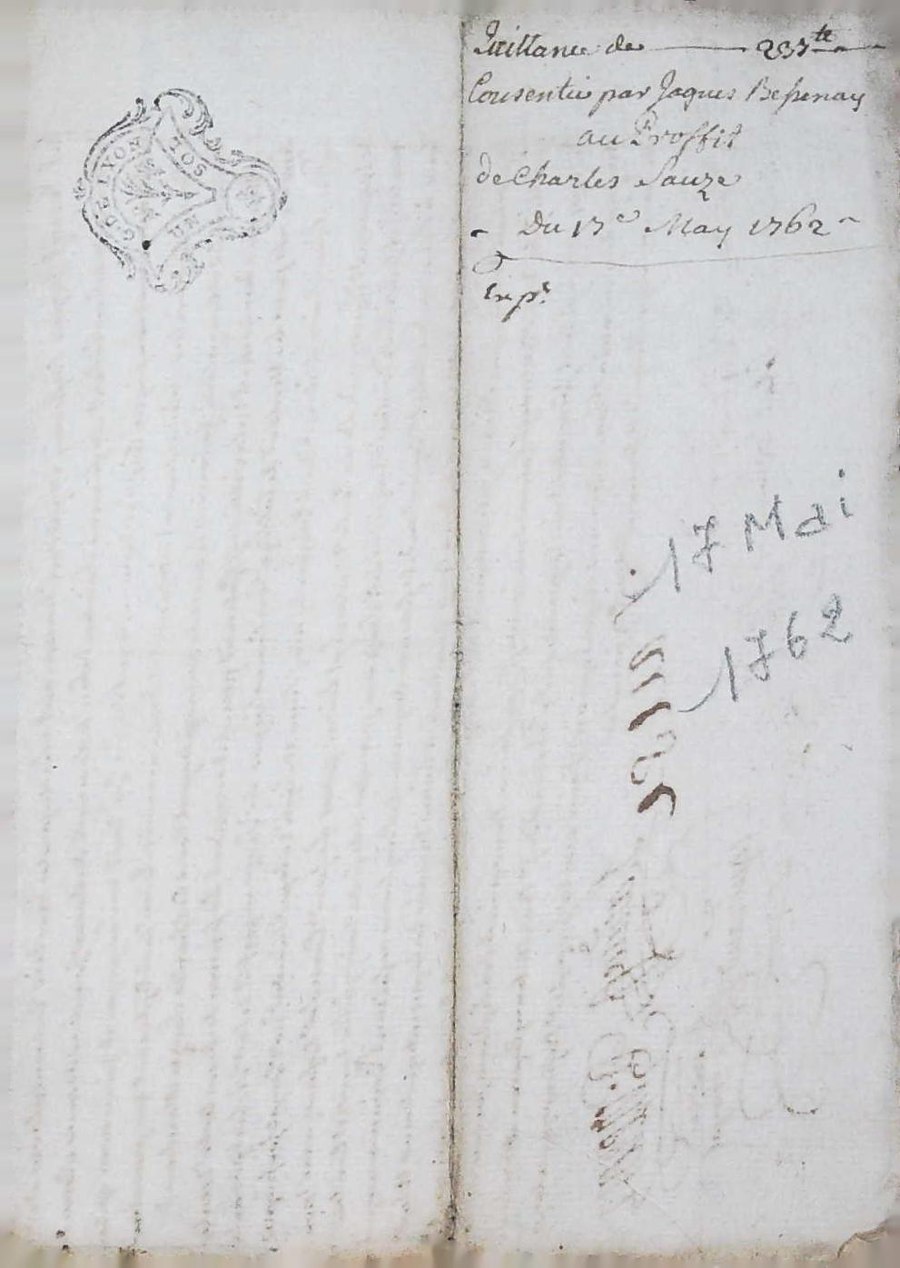 G. DE LYON
UN SOL
Quittance de 237 tt
Consentie par Jaques Bessenay
au Proffit
de Charles Sauze
Du 17e May 1762
Exp.
17 Mai
1762